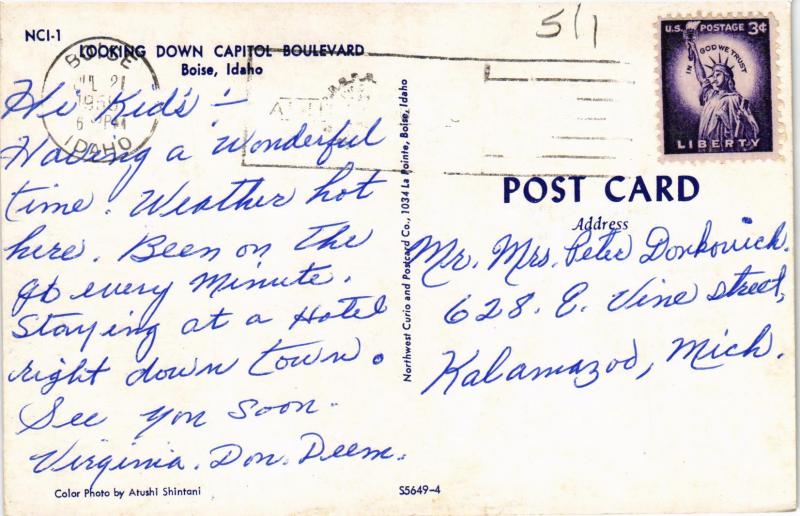 NCI-1
LOOKING DOWN CAPITOL BOULEVARD
Boise, Idaho
BOISE
IDAHO
Hi Kid's -
Having a Wonderful
time. Weather hot
here. Been on the
go every Minute.
Staying at a Hotel
right down town.
See you soon.
Virginia. Don. Deem.
Color Photo by Atushi Shintani
Northwest Curio and Postcard Co., 1034 La Pointe, Boise, Idaho
S5649-4
5/1
U.S. POSTAGE 3¢
IN GOD WE TRUST
LIBERTY
POST CARD
Address
Mr. Mrs. Peter Donkovich.
628. E. Vine street,
Kalamazoo, Mich.